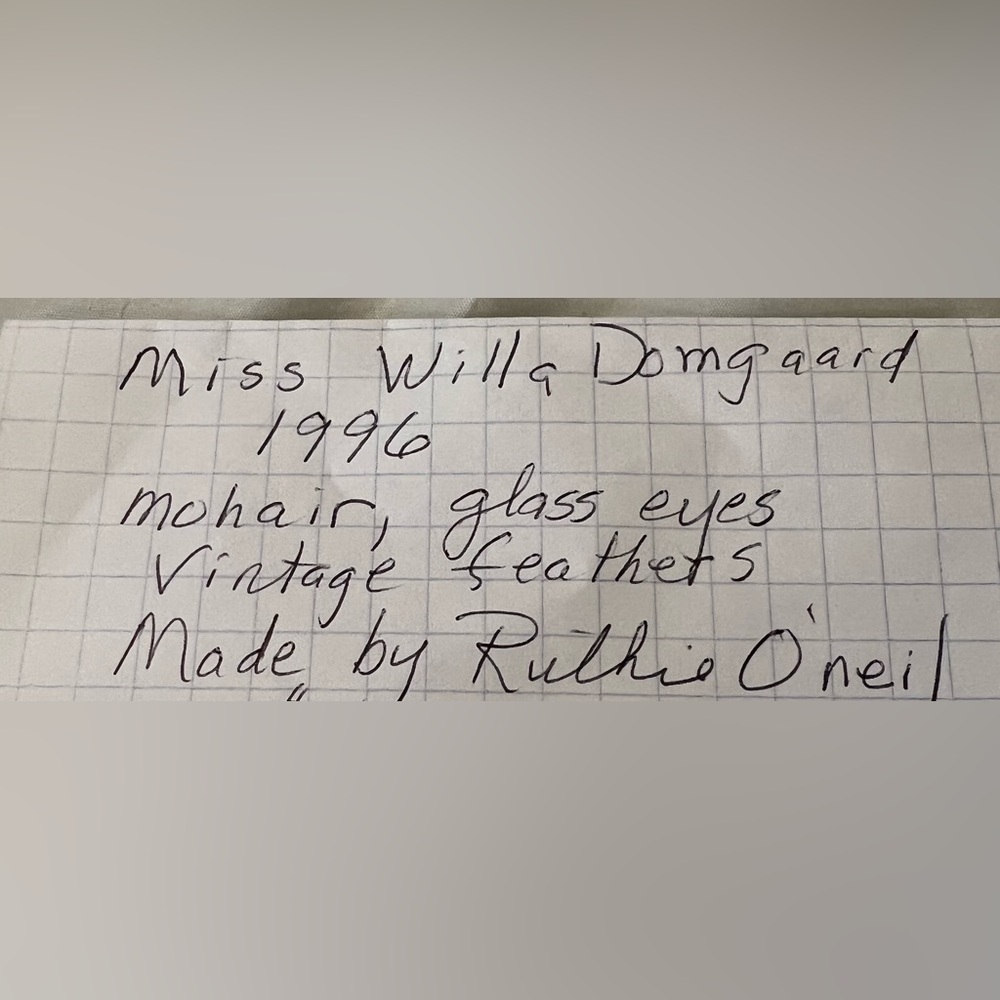 Miss Willa Domgaard
1996
mohair, glass eyes
Vintage feathers
Made by Ruthie O'neil